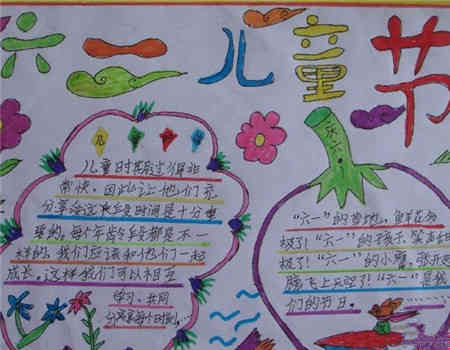 六一儿童节
儿童时期过得非
常快，因此让他们充
分享受这段时间是十分重
要的。每个年龄段都是不一
样的，我们应该和他们一起
成长，这样我们可以相互
学习，共同
分享每个时刻……
庆六一
"六一"的营地，鲜花多
极了！"六一"的孩子，笑声甜
极了！"六一"的小鹰，张开翅
膀飞上天空了！"六一"是我
们的节日。